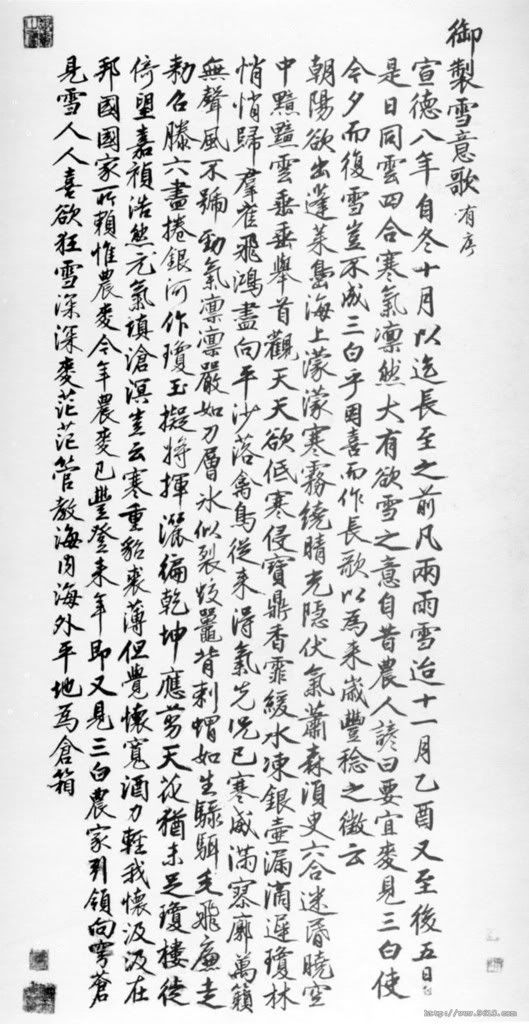 御製雪意歌 有序
宣德八年自冬十月以迄長至之前凡兩雨雪迨十一月乙酉又至後五日也
是日同雲四合寒氣凛然大有欲雪之意自昔農人諺曰要宜麥見三白使
今夕而復雪豈不成三白乎因喜而作長歌以為来歲豐稔之徵云
朝陽欲出蓬萊島海上濛濛寒霧繞晴光隱伏氣蕭森湏臾六合迷昏曉空
中黯黯雲垂垂舉首觀天天欲低寒侵寶鼎香霏緩水凍銀壺漏滴遲瓊林
悄悄歸羣雀飛鴻盡向平沙落禽鳥從来得氣先况已寒威滿寥廓萬籟
無聲風不號勁氣凛凛嚴如刀層氷似裂蛟鼉背刺蝟如生騄駬毛飛廉走
勅召滕六盡捲銀河作瓊玉擬将揮灑徧乾坤應剪天花猶未足瓊樓徙
倚望嘉禎浩然元氣填滄溟豈云寒重貂裘薄但覺懷寬酒力輕我懷汲汲在
邦國國家所賴惟農麥今年農麥已豐登来年即又見三白農家引領向穹蒼
見雪人人喜欲狂雪深深麥茫茫管教海内海外平地為倉箱
http://www.9610.com